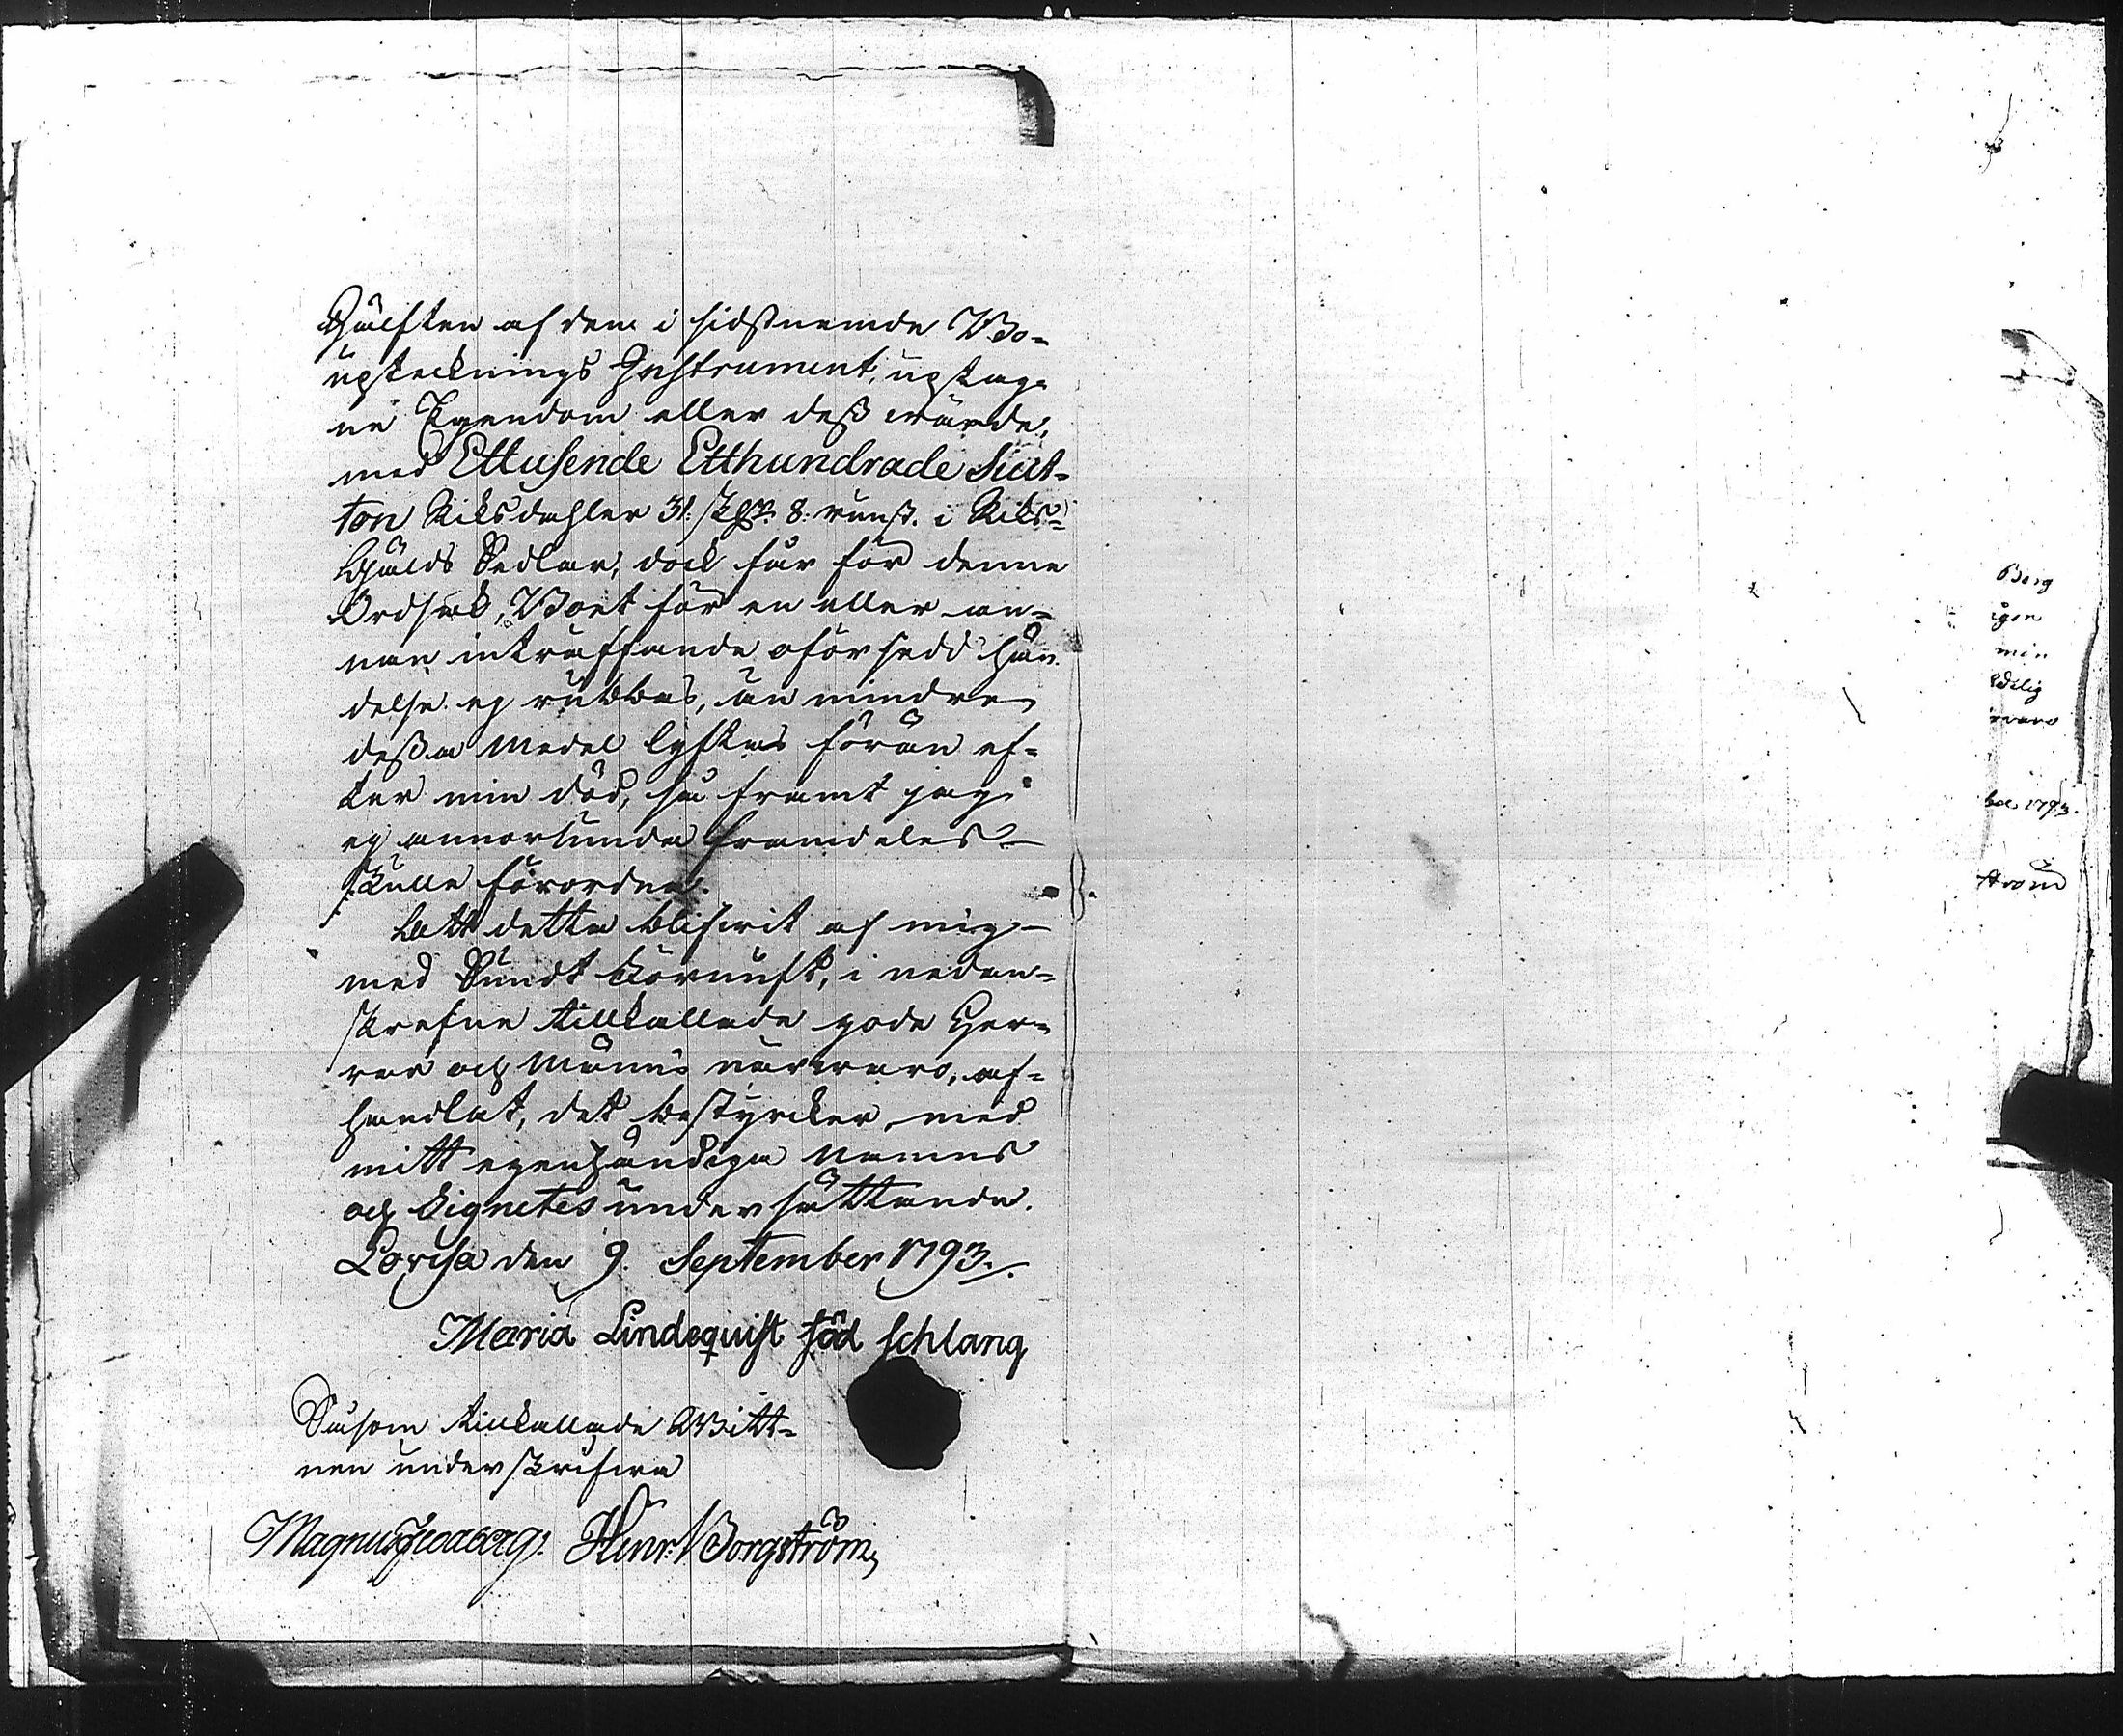 Hälften af dem i sidstnemde Bo-
uptecknings Instrument, uptag-
ne Egendom eller dess wärde,
med Ettusende Etthundrade Siut-
ton Riksdahler 31. sk. 8. runst. i Riks-
Gjälds Sedlar, dock får för denne
Ordsak, Boet för en eller an-
nan inträffande oförsedd hän-
delse ej rubbas, än mindre
dessa Medel lyftas förän ef-
ter min död, så framt jag
ej annorlunda framdeles
skulle förordna.
Att detta blifwit af mig
med Sundt förnuft, i nedan-
skrefne tillkallade gode Her-
rar och Mäns närwaro, af-
handlat, det bestyrcker med
mitt egenhändiga Namns
och Signetes undersättande.
Lovisa den 9. September 1793.
Maria Lindequist föd Schlang
Såsom tillkallade Witt-
nen underskrifwa
Magnus Hinr: Borgström
Borg
igen
min
warо
ber 1793.
ström